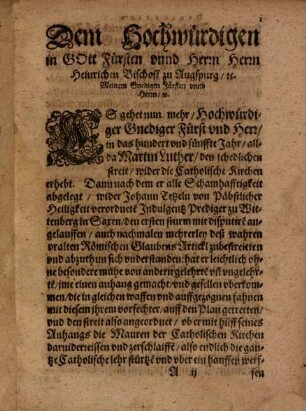 Dem Hochwürdigen
in GOtt Fürsten vnnd Herrn Herrn
Heinrichen Bischoff zu Augspurg/ ꝛc.
Meinem Gnedigen Fürsten vnnd
Herrn/ ꝛc.
ES gehet nun mehr/ Hochwürdi-
ger Gnediger Fürst vnd Herr/
in das hundert vnd fünffte Jahr/ all-
da Martin Luther/ den schedlichen
streit/ wider die Catholische Kirchen
erhebt. Dann nach dem er alle Schamhafftigkeit
abgelegt/ wider Johann Tetzeln von Päbstlicher
Heiligkeit verordnete Indulgentz Prediger zu Wit-
tenberg in Saxen/ den ersten sturm mit disputirn an-
gelauffen/ auch nachmalen mehrerley deß wahren
vralten Römischen Glaubens Artickl zubestreitten
vnd abzuthun sich vnderstanden: hat er leichtlich oh-
ne besondere mühe von andern gelehrte vñ vngelehr-
te/ ime einen anhang gemacht/ vnd gesellen oberkom-
men/ die in gleichen waffen vnd auffgezognen fahnen
mit diesem ihrem vorfechter/ auff den Plan getretten/
vnd den streit also angeordnet/ ob er mit hilff seines
Anhangs die Mauren der Catholischen Kirchen
darnider reissen vnd zerschlaifft/ also endlich die gan-
tze Catholische lehr stürtzt vnd vber ein hauffen werf-
A ij
fen